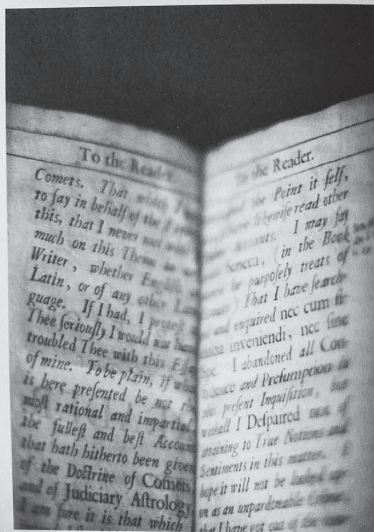 To the Reader.
Comets. That which I
to say in behalf of the
this, that I never
much on this Theme
Writer, whether English,
Latin, or of any other Lan
guage. If I had, I protest
Thee seriously I would not have
troubled Thee with this Essay
of mine. To be plain, if what
is here presented be not
most rational and impartial,
the fullest and best Account
that hath hitherto been given
of the Doctrine of Comets,
and of Judiciary Astrology
I am sure it is that which
to the Reader.
the Point it self,
have likewise read other
I may say
Seneca, (in the Book
he purposely treats of
) That I have search
and enquired nec cum
inveniendi, nec sine
Spe. I abandoned all Con
fidence and Presumption in
this present Inquisition, but
withall I Despaired not of
attaining to True Notions and
Sentiments in this matter.
hope it will not be looked up
on as an unpardonable
that I have got out of